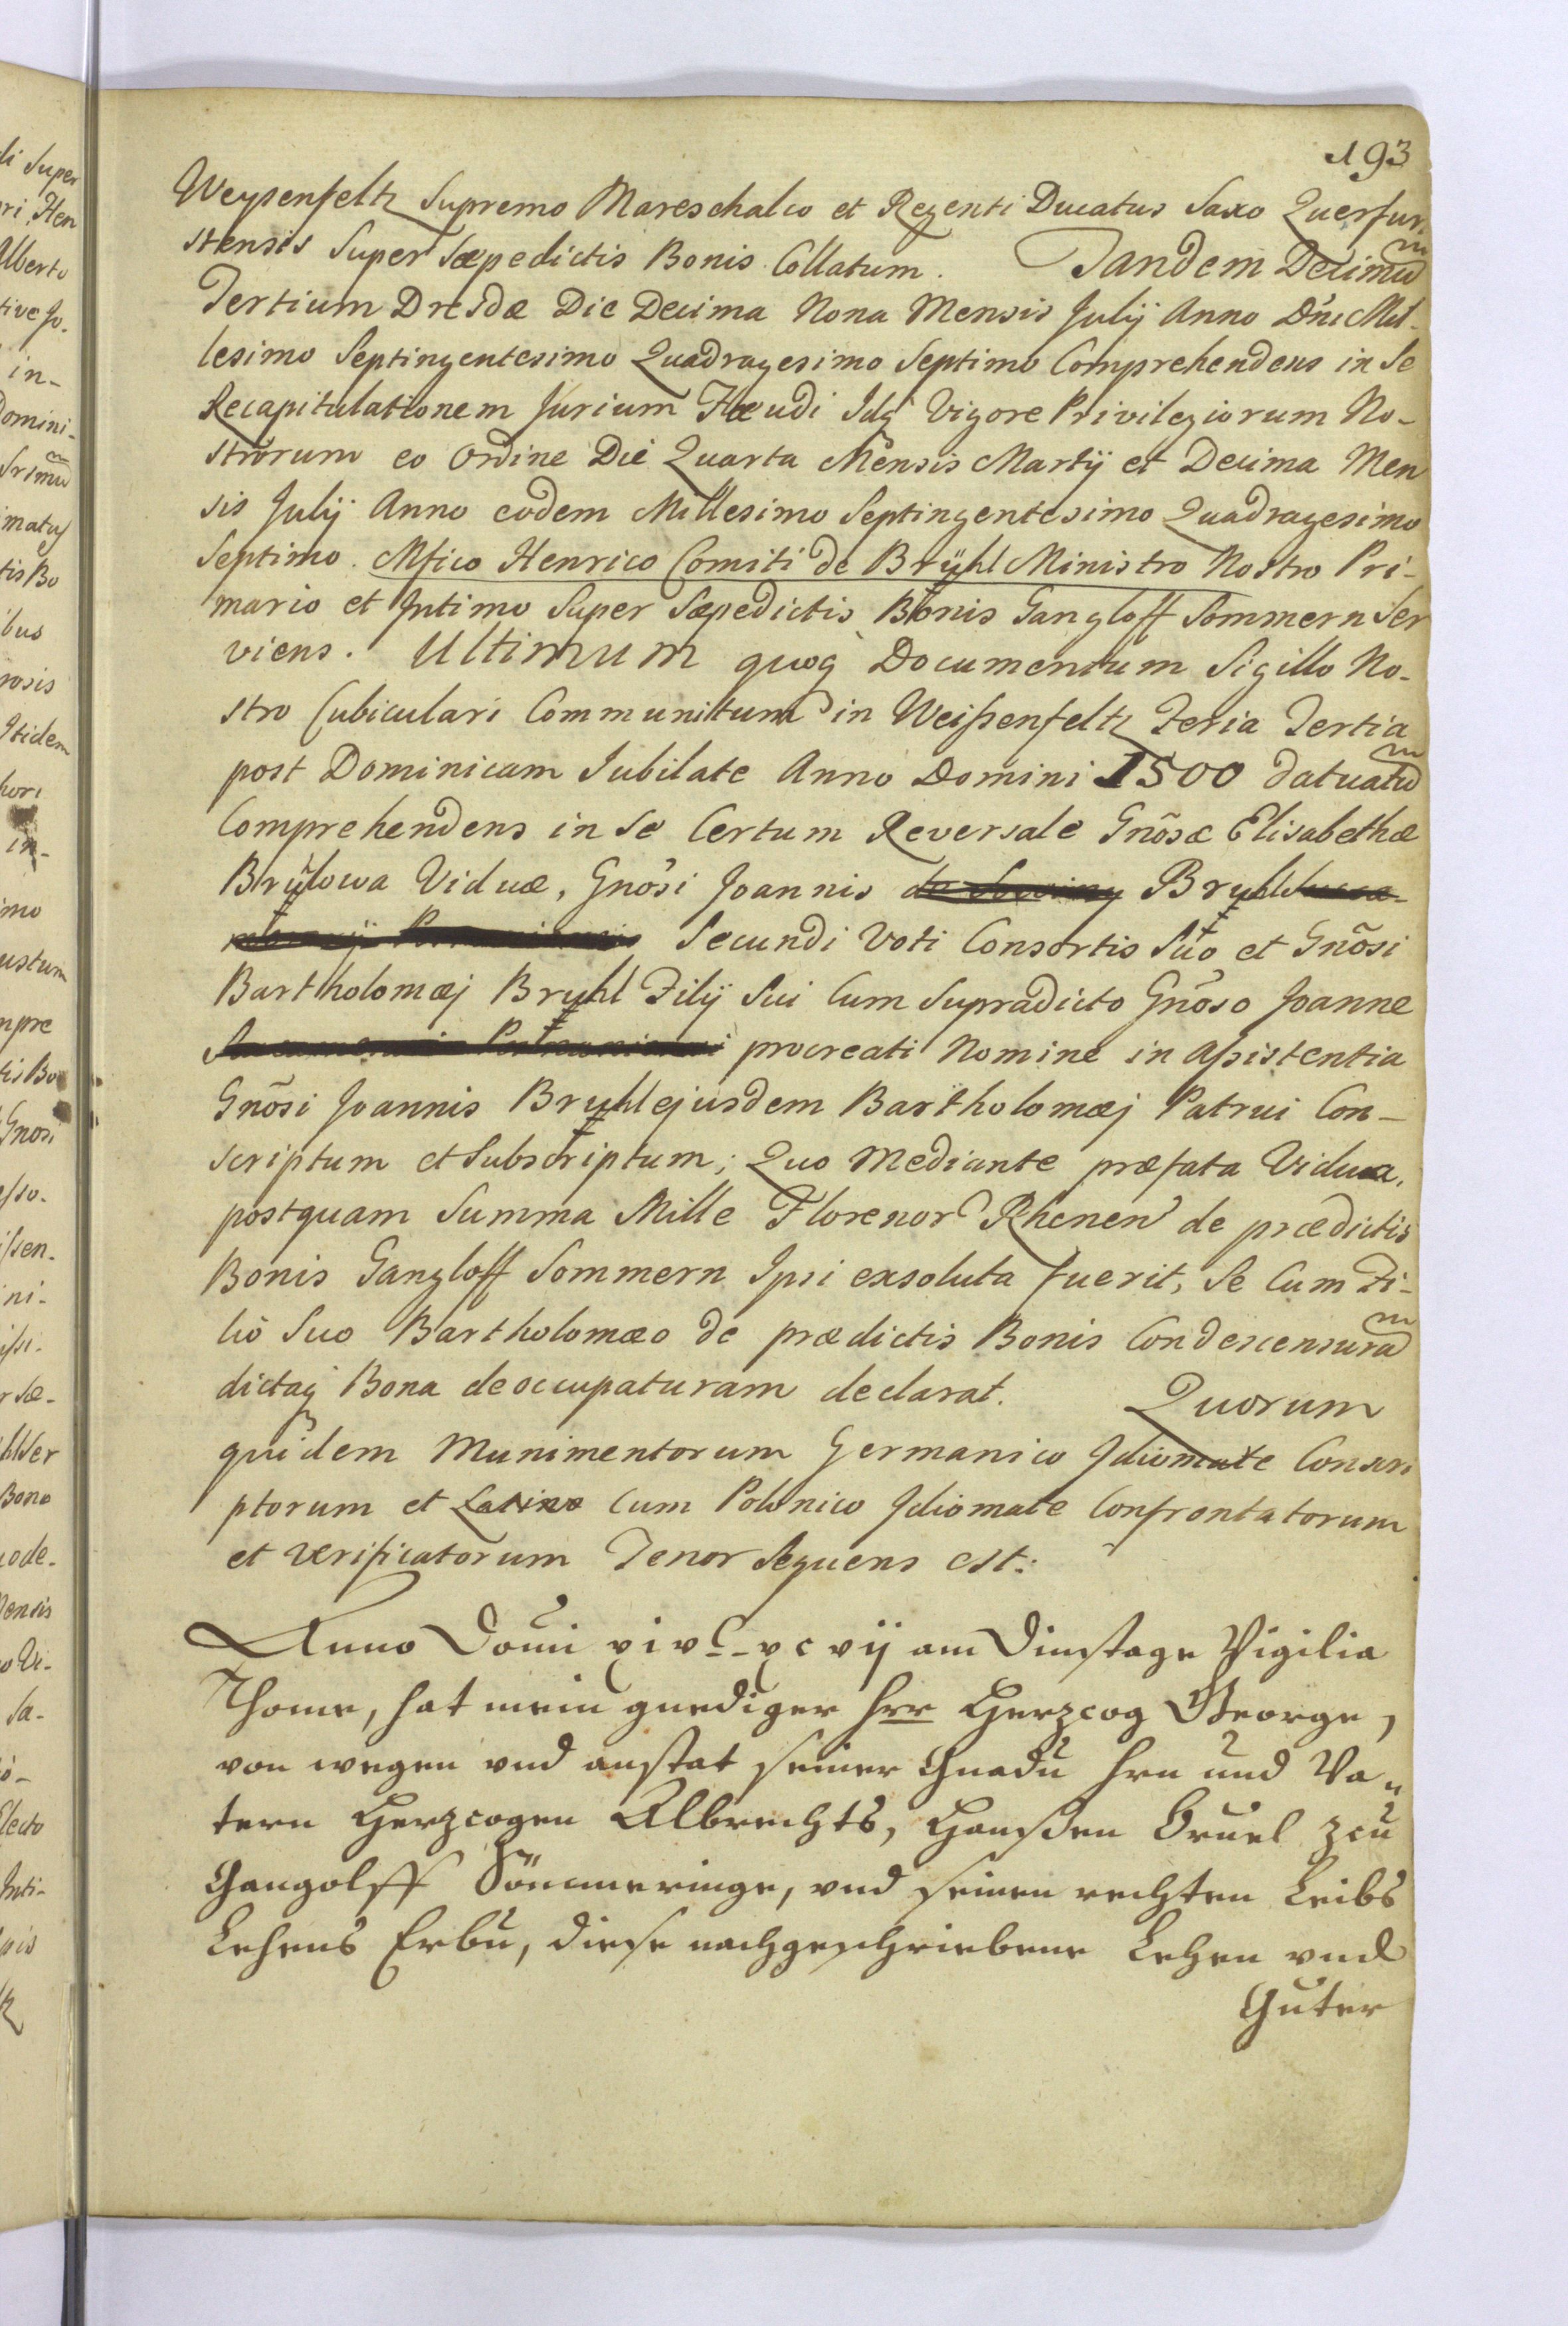 193
Weysenfeltz Supremo Mareschalco et Regenti Ducatus Saxo Querfur-
stensis Super Sæpedictis Bonis Collatum. Tandem Decimũ
Tertium Dresdæ Die Decima Nona Mensis Julij Anno Dni Mil-
lesimo Septingentesimo Quadragesimo Septimo Comprehendens in Se
Recapitulationem Jurium Fœudi Idq Vigore Privilegiorum No-
strorum eo Ordine Die Quarta Mensis Martij et Decima Men
sis Julij Anno eodem Millesimo Septingentesimo Quadragesimo
Septimo. Mfico Henrico Comiti de Brÿhl Ministro Nostro Pri-
mario et Intimo Super Sæpedictis Bonis Gangloff Sommern Ser
viens. Ultimum quoq Documentum Sigillo No-
stro Cubiculari Communitum in Weißenfeltz Feria Tertia
post Dominicam Jubilate Anno Domini 1500 datuatũ
Comprehendens in Se Certum Reversale Gnõsæ Elisabethæ
Brÿlowa Viduæ, Gnõsi Joannis Bruhl
Secundi Voti Consortis Suo et Gnõsi
Bartholomæj Bruhl Filij Sui Cum Supradicto Gnõso Joanne
procreati Nomine in Assistentia
Gnõsi Joannis Bruhl ejusdem Bartholomæj Patrui Con-
scriptum et Subscriptum; Quo Mediante præfata Vidua,
postquam Summa Mille Florenor Rhenen de prædictis
Bonis Gangloff Sommern Ipsi exsoluta fuerit, Se Cum Fi-
liô Suo Bartholomæo de prædictis Bonis Condescensurã
dictaq Bona deoccupaturam declarat. Quorum
quidem Munimentorum Germanico Idiomate Conscri
ptorum et Latino Cum Polonico Idiomate Confrontatorum
et Verificatorum Tenor Sequens est:
Anno Domi xivC-xc vij am Dinstage Vigilia
Thome, hat mein gnediger Hrr Herzcog George,
von wegen vnd anstat seiner Gnadn Hrn und Va-
tern Herzcogen Albrechts, Hanßen Bruel zcu
Gangolff Sömmeringe, vnd seinen rechten Leibs
Lehens Erbn, diese nachgeschriebene Lehen vnd
Guter